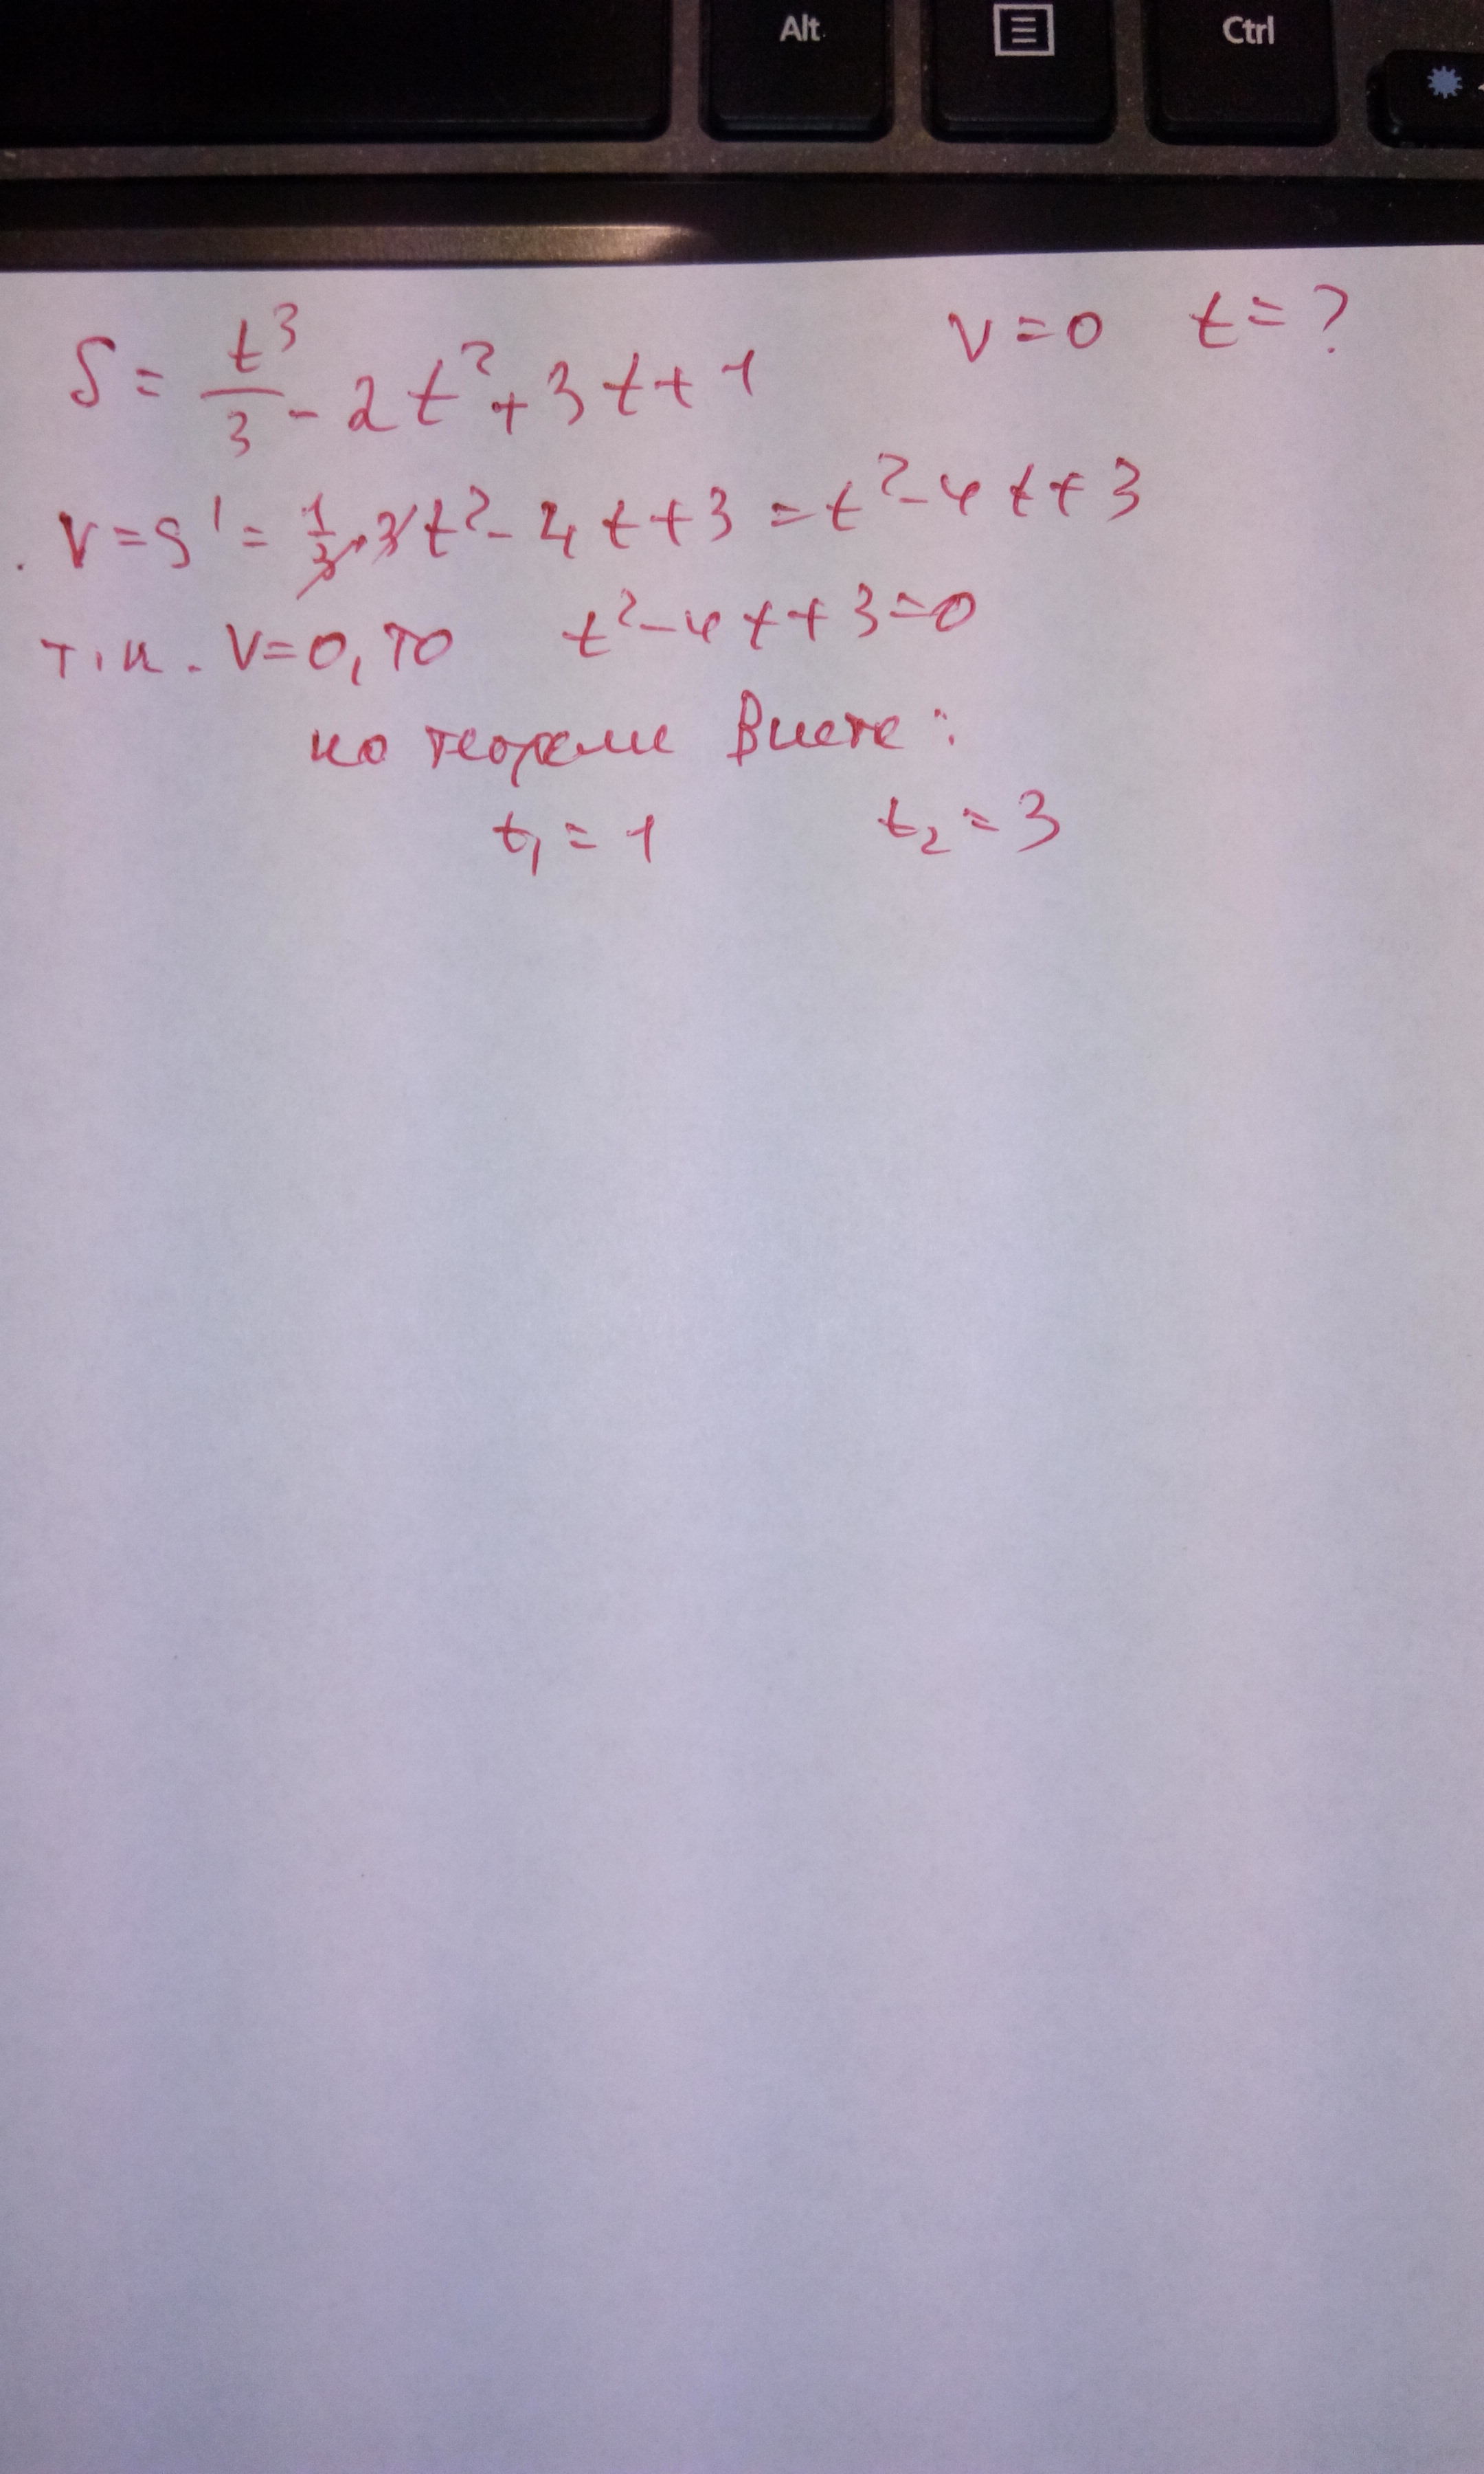 Alt Ctrl
S = t³/3 - 2t² + 3t + 1 v = 0 t = ?
v = S' = 1/3 · 3t² - 4t + 3 = t² - 4t + 3
т.к. v = 0, то t² - 4t + 3 = 0
по теореме Виета:
t₁ = 1 t₂ = 3